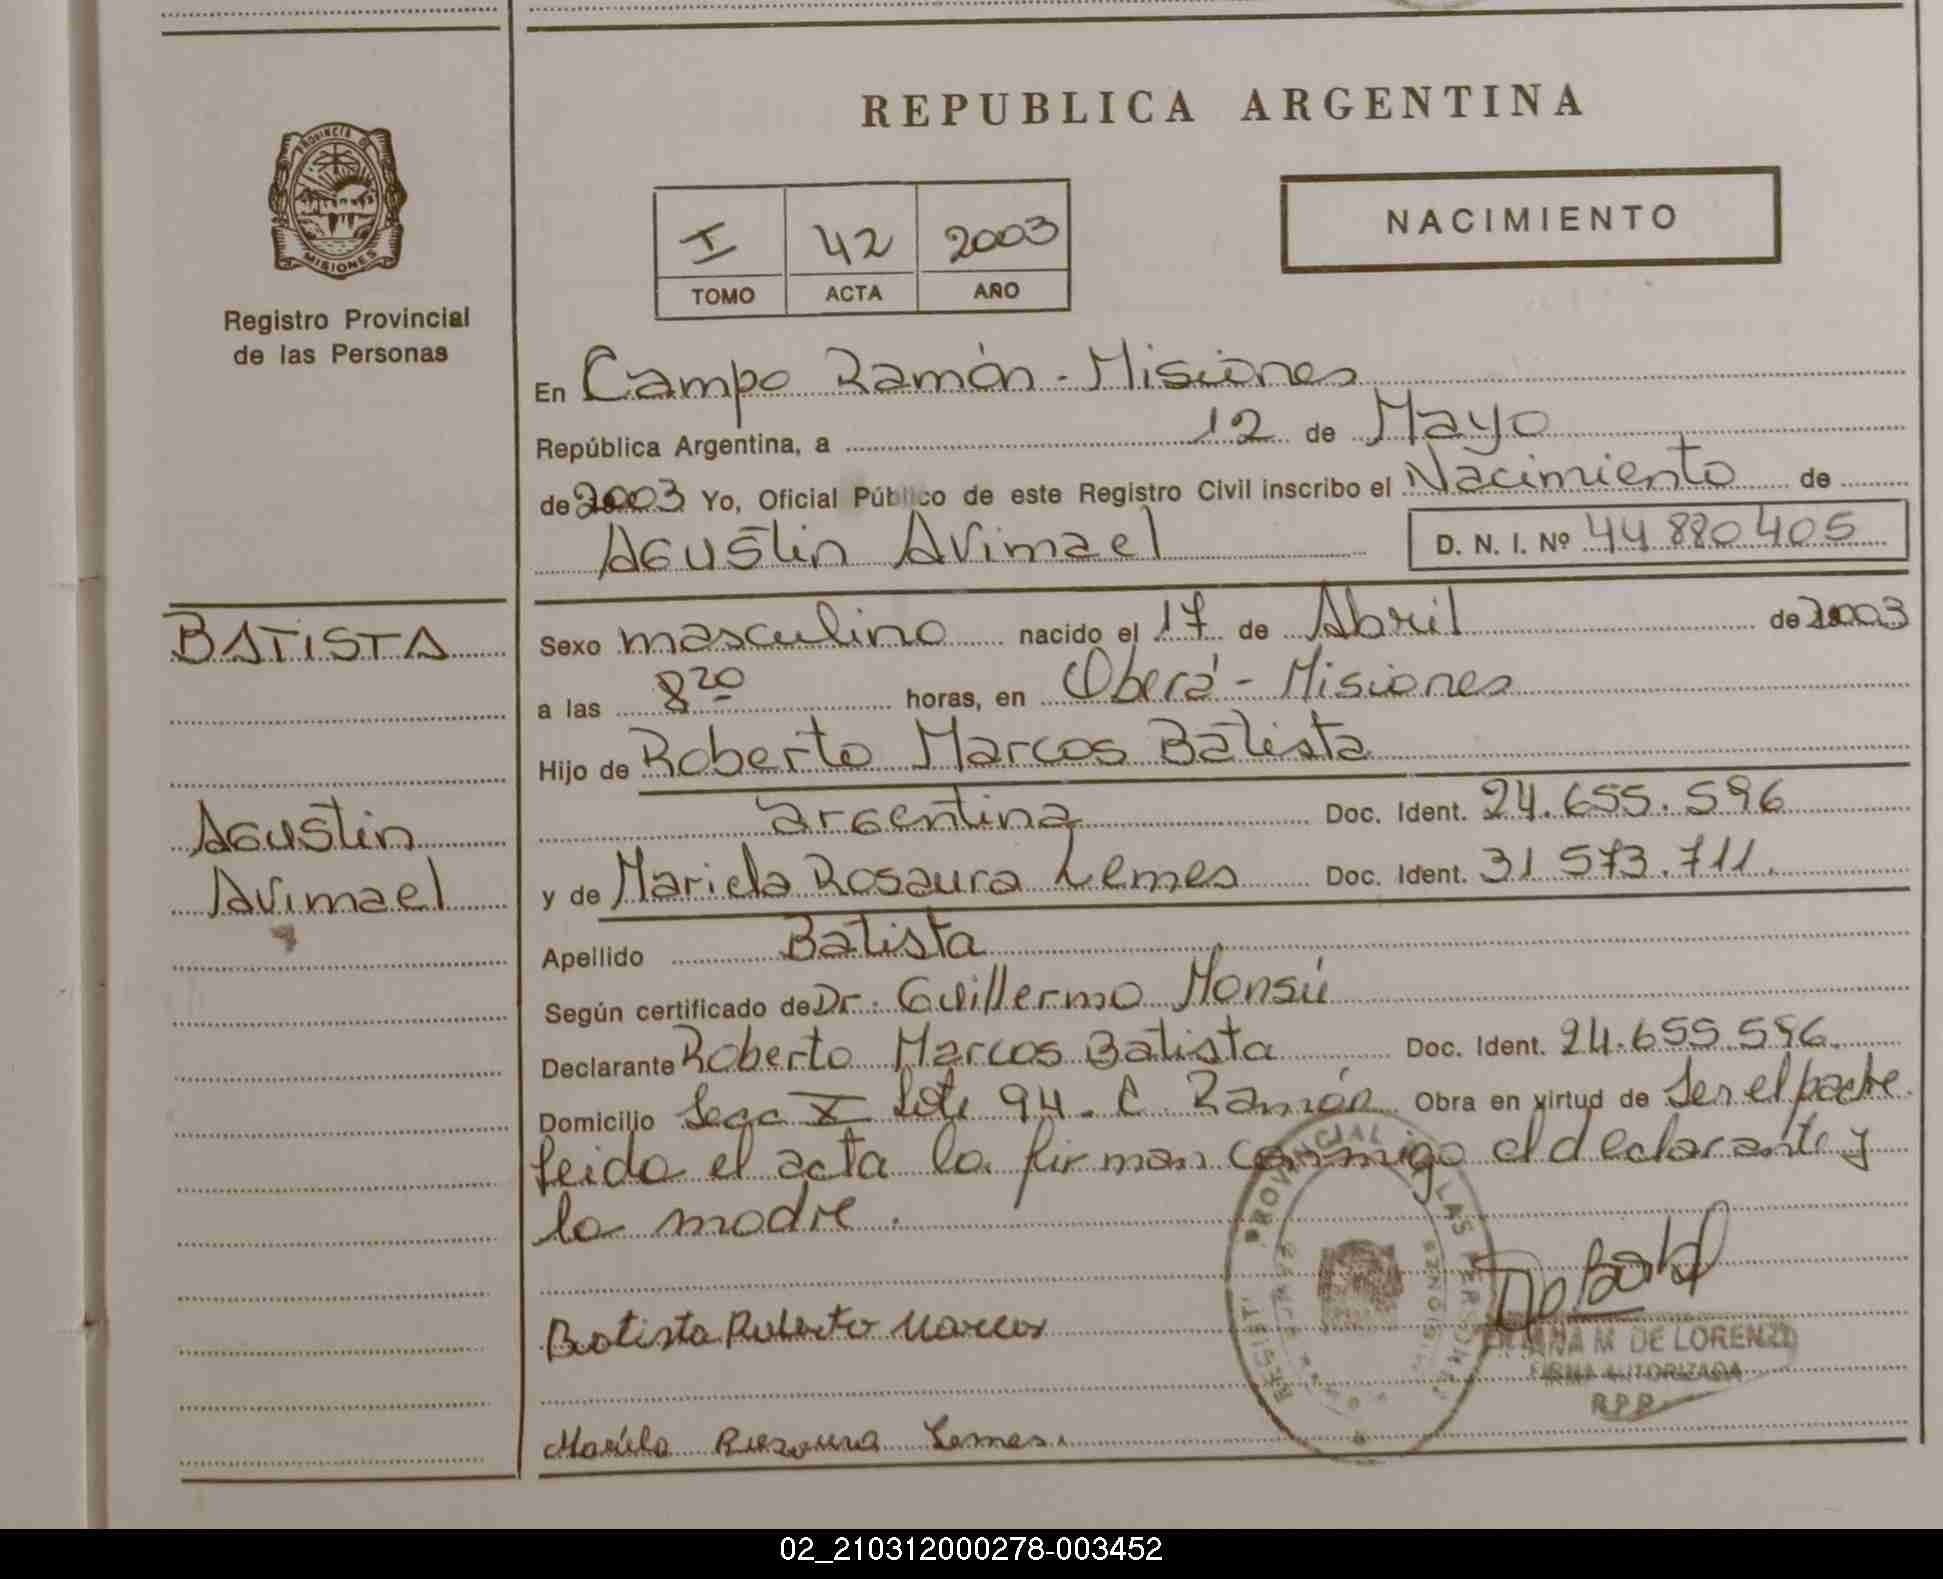 REPUBLICA ARGENTINA
PROVINCIA DE
MISIONES
Registro Provincial
de las Personas
I 42 2003
TOMO ACTA AÑO
NACIMIENTO
En Campo Ramón - Misiones
República Argentina, a 12 de Mayo
de 2003 Yo, Oficial Público de este Registro Civil inscribo el Nacimiento de
Agustin Avimael D. N. I. Nº 44 880 405
BATISTA
Agustin
Avimael
Sexo masculino nacido el 17 de Abril de 2003
a las 8 20 horas, en Oberá - Misiones
Hijo de Roberto Marcos Batista
argentina Doc. Ident. 24.655.596
y de Mariela Rosaura Lemes Doc. Ident. 31 573.711.
Apellido Batista
Según certificado de Dr. Guillermo Monsú
Declarante Roberto Marcos Batista Doc. Ident. 24.655 596.
Domicilio Secc X Lote 94. C. Ramón Obra en virtud de Ser el padre.
Leida el acta la firman conmigo el declarante y
la madre.
REGIST. PROVINCIAL LAS PERSONAS
MISIONES
Batista Roberto Marcos
M DE LORENZO
FIRMA AUTORIZADA
R.P.P.
Mariela Rosaura Lemes.
02_210312000278-003452